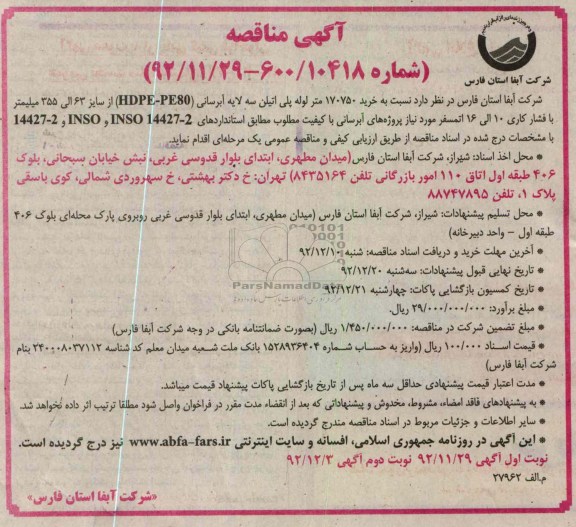 آگهی مناقصه
(شماره ۶۰۰/۱۰۴۱۸-۹۲/۱۱/۲۹)
شرکت آبفا استان فارس
شرکت آبفا استان فارس در نظر دارد نسبت به خرید ۱۷۰۷۵۰ متر لوله پلی اتیلن سه لایه آبرسانی (HDPE-PE80) از سایز ۶۳ الی ۳۵۵ میلیمتر
با فشار کاری ۱۰ الی ۱۶ اتمسفر مورد نیاز پروژه‌های آبرسانی با کیفیت مطلوب مطابق استانداردهای INSO 14427-2 و INSO و 14427-2
با مشخصات درج شده در اسناد مناقصه از طریق ارزیابی کیفی و مناقصه عمومی یک مرحله‌ای اقدام نماید.
• محل اخذ اسناد: شیراز، شرکت آبفا استان فارس (میدان مطهری، ابتدای بلوار قدوسی غربی، نبش خیابان سبحانی، بلوک
۴۰۶ طبقه اول اتاق ۱۱۰ امور بازرگانی تلفن ۸۴۳۵۱۶۴) تهران: خ دکتر بهشتی، خ سهروردی شمالی، کوی باسقی
پلاک ۱، تلفن ۸۸۷۴۷۸۹۵
• محل تسلیم پیشنهادات: شیراز، شرکت آبفا استان فارس (میدان مطهری، ابتدای بلوار قدوسی غربی روبروی پارک محله‌ای بلوک ۴۰۶
طبقه اول – واحد دبیرخانه)
• آخرین مهلت خرید و دریافت اسناد مناقصه: شنبه ۹۲/۱۲/۱۰
• تاریخ نهایی قبول پیشنهادات: سه‌شنبه ۹۲/۱۲/۲۰
• تاریخ کمسیون بازگشایی پاکات: چهارشنبه ۹۲/۱۲/۲۱
• مبلغ برآورد: ۲۹/۰۰۰/۰۰۰/۰۰۰ ریال.
• مبلغ تضمین شرکت در مناقصه: ۱/۴۵۰/۰۰۰/۰۰۰ ریال (بصورت ضمانتنامه بانکی در وجه شرکت آبفا فارس)
• قیمت اسناد ۱۰۰/۰۰۰ ریال (واریز به حساب شماره ۱۵۲۸۹۳۶۴۰۴ بانک ملت شعبه میدان معلم کد شناسه ۲۴۰۰۰۸۰۳۷۱۱۲ بنام
شرکت آبفا فارس)
• مدت اعتبار قیمت پیشنهادی حداقل سه ماه پس از تاریخ بازگشایی پاکات پیشنهاد قیمت میباشد.
• به پیشنهادهای فاقد امضاء، مشروط، مخدوش و پیشنهاداتی که بعد از انقضاء مدت مقرر در فراخوان واصل شود مطلقا ترتیب اثر داده نخواهد شد.
• سایر اطلاعات و جزئیات مربوط در اسناد مناقصه مندرج گردیده است.
• این آگهی در روزنامه جمهوری اسلامی، افسانه و سایت اینترنتی www.abfa-fars.ir نیز درج گردیده است.
نوبت اول آگهی ۹۲/۱۱/۲۹ نوبت دوم آگهی ۹۲/۱۲/۳
م.الف ۲۷۹۶۲
«شرکت آبفا استان فارس»
ParsNamadData